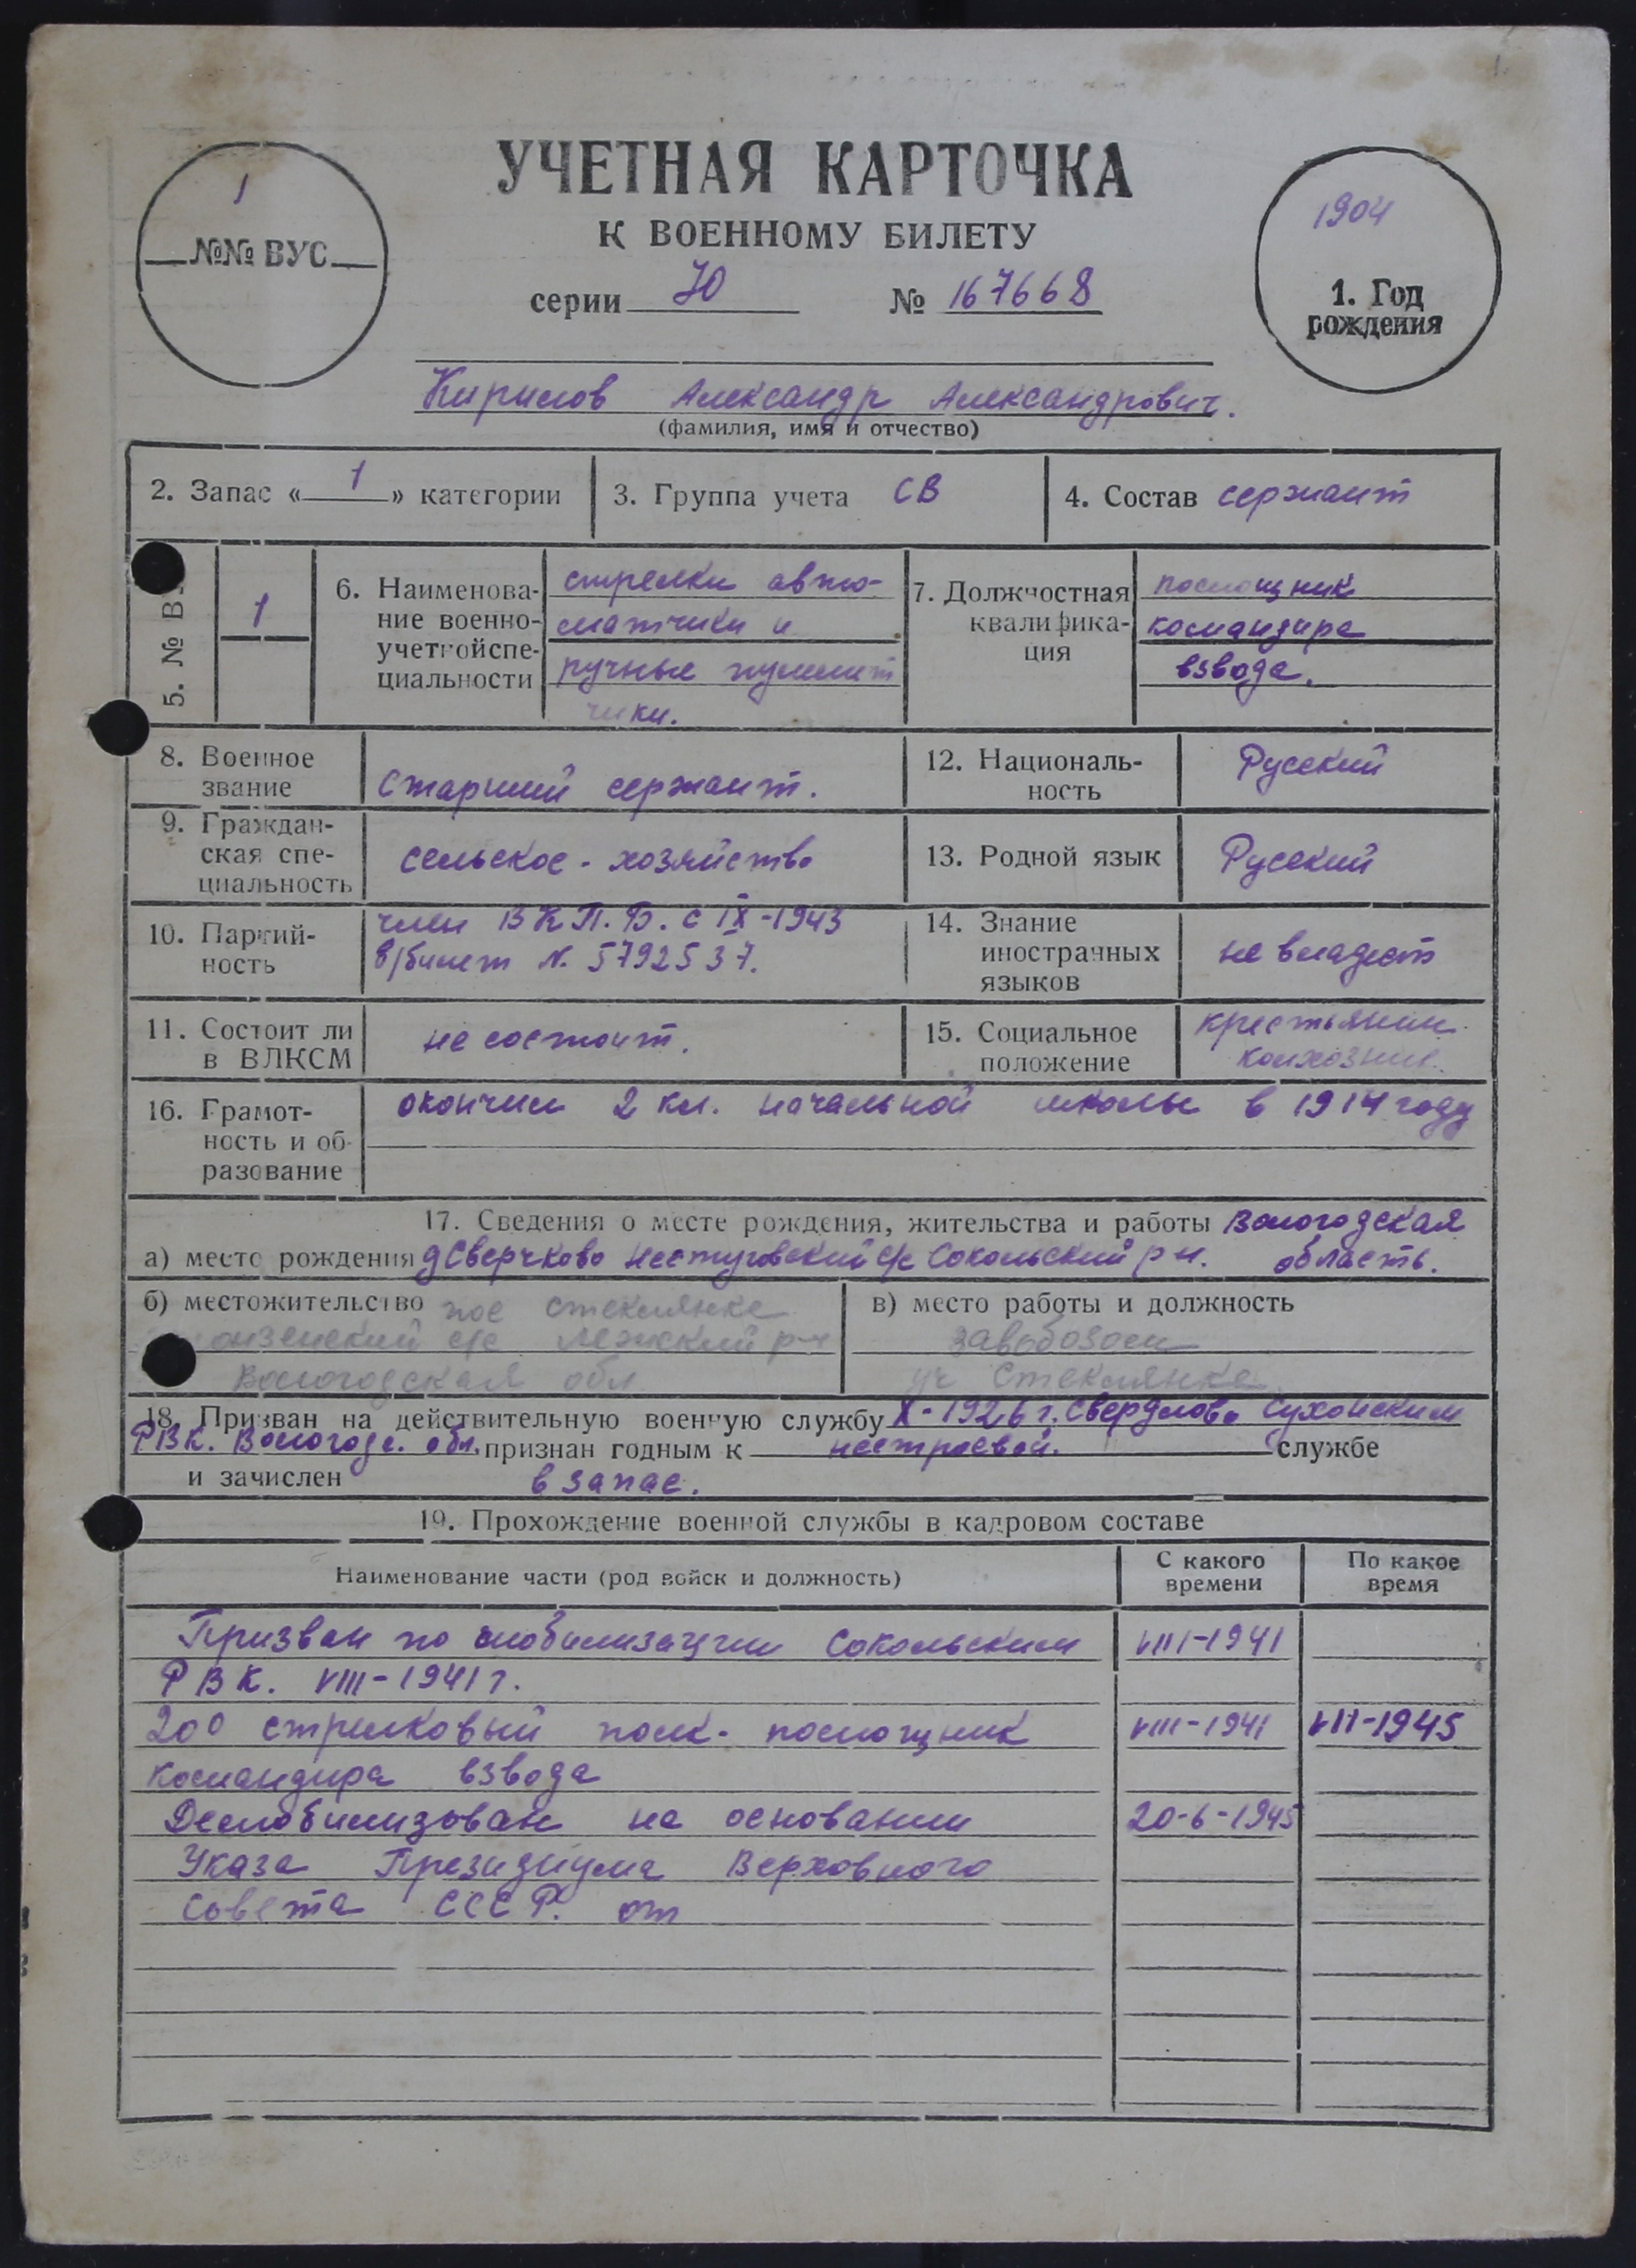 УЧЕТНАЯ КАРТОЧКА
К ВОЕННОМУ БИЛЕТУ
1
№№ ВУС
1904
1. Год
рождения
серии Ю № 167668
Кирилов Александр Александрович.
(фамилия, имя и отчество)
2. Запас « 1 » категории
3. Группа учета СВ
4. Состав сержант
5. № В
1
6. Наименова-
ние военно-
учетной спе-
циальности
стрелки авто-
матчики и
ручные пулемет
чики.
7. Должностная
квалифика-
ция
помощник
командира
взвода.
8. Военное
звание
Старший сержант.
12. Националь-
ность
Русский
9. Граждан-
ская спе-
циальность
сельское - хозяйство
13. Родной язык
Русский
10. Партий-
ность
член В К П. Б. с IX-1943
п/билет N. 5792537.
14. Знание
иностранных
языков
не владеет
11. Состоит ли
в ВЛКСМ
не состоит.
15. Социальное
положение
крестьянин
колхозник.
16. Грамот-
ность и об-
разование
окончил 2 кл. начальной школы в 1914 году
17. Сведения о месте рождения, жительства и работы Вологодская
а) место рождения д Сверчково с/с Сокольский р н. область.
б) местожительство пос Стеклянка
с/с Лежский р-н
Вологодская обл
в) место работы и должность
уч Стеклянка
18. Призван на действительную военную службу X-1926 г. Свердлово Сухонским
РВК. Вологодс. обл. признан годным к нестроевой. службе
и зачислен в запас.
19. Прохождение военной службы в кадровом составе
Наименование части (род войск и должность)
С какого
времени
По какое
время
Призван по мобилизации Сокольским VIII-1941
РВК. VIII-1941 г.
200 стрелковый полк- помощник VIII-1941 VII-1945
командира взвода
Демобилизован на основании 20-6-1945
Указа Президиума Верховного
Совета СССР. от